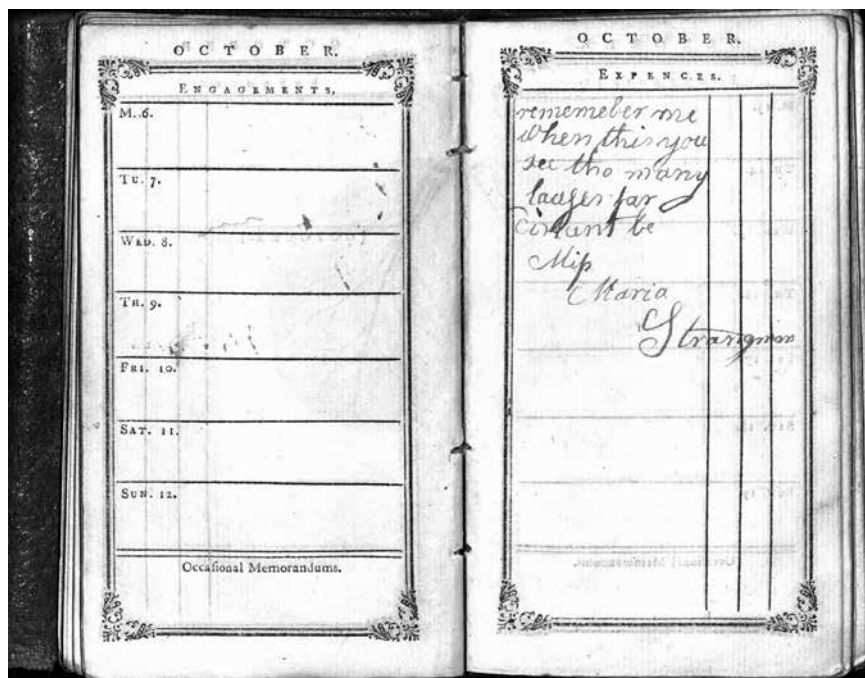 OCTOBER.
ENGAGEMENTS.
M. 6.
TU. 7.
WED. 8.
TH. 9.
FRI. 10.
SAT. 11.
SUN. 12.
Occaſional Memorandums.
OCTOBER.
EXPENCES.
rememeber me
when this you
see tho many
far
be
Miſs
Maria
Strangman